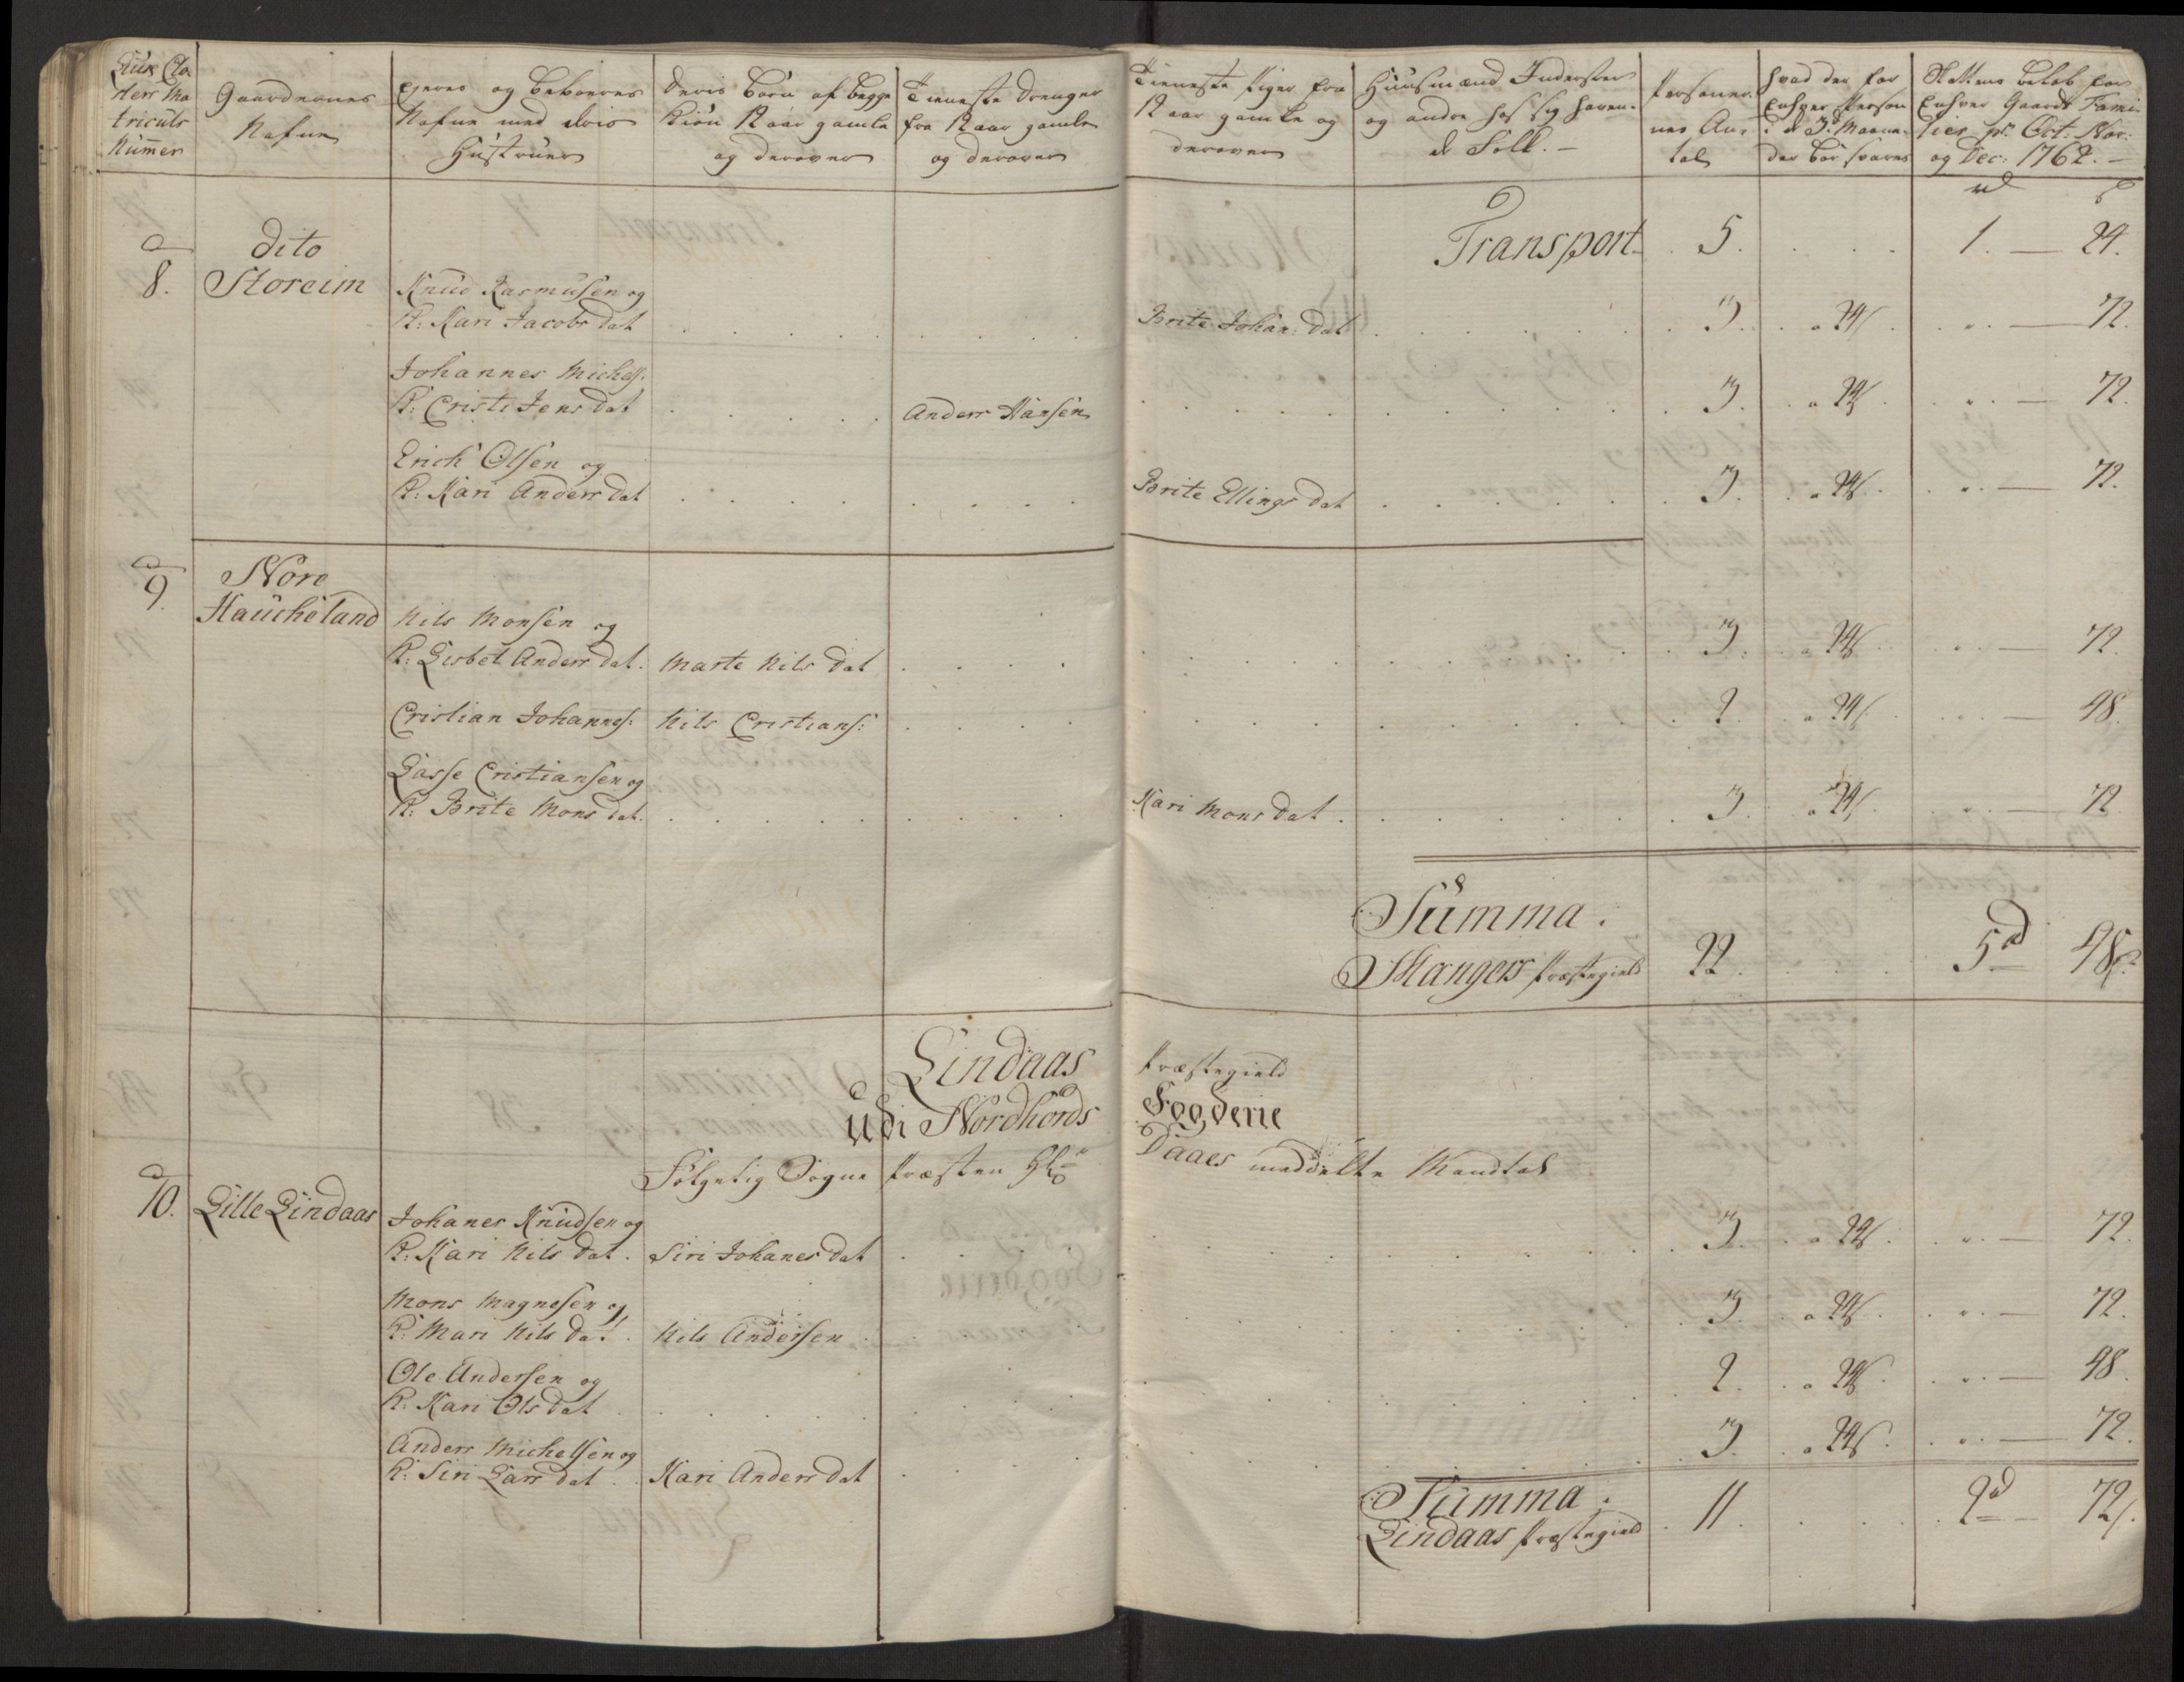 Lüx Clo-
sters Ma
triculs
Numer
Gaardernes
Nafne
Ejeres og Beboeres
Nafne med deris
Hustruer
Deris Børn af begge
Kiøn 12 aar gamle
og derover
Tieneste Drenger
fra 12 aar gamle
og derover
Tieneste Piger fra
12 aar gamle og
derover
Huusmænd Inderster
og andre hos sig haven-
de Folk. –
Personer-
nes An-
tal
Hvad der for
Enhver Person
i de 3de Maane-
der bør svares
Skattens beløb for
Enhver Gaards Fami-
lier pr. Oct: Nov:
og Dec: 1762. –
rd ß
dito Transport 5. 1. — 24.
8. Storeim Knud Rasmusen og
K: Kari Jacobs dat Brite Johan: dat 3. a 24ß „ — 72.
Johannes Michels:
K: Cristi Jens dat Anders Hansen 3. a 24ß „ — 72.
Erich Olsen og
K: Kari Anders dat Brite Ellings dat 3. a 24ß „ — 72.
9. Nore
Haucheland Nils Monsen og
K: Lisbet Anders dat. Marte Nils dat 3. a 24ß „ — 72.
Cristian Johannes: Nils Cristians: 2. a 24ß „ — 48.
Lasse Cristiansen og
K: Brite Mons dat. Kari Mons dat. 3. a 24ß „ — 72
Summa.
Mangers Præstegield 22. 5d 48ß
Lindaas Præstegield
udi Nordhords Fogderie
Følgelig Sogne Præsten Daaes meddelte Mandtal
10. Lille Lindaas Johanes Knudsen og
K: Kari Nils dat. Siri Johanes dat 3. a 24ß „ — 72.
Mons Magnesen og
K: Mari Nils dat. Nils Andersen 3. a 24ß „ — 72.
Ole Andersen og
K: Kari Ols dat 2. a 24ß „ — 48.
Anders Michelsen og
K: Siri Lars dat Kari Anders dat 3. a 24ß „ — 72.
Summa.
Lindaas Præstegield 11. 2d 72ß.